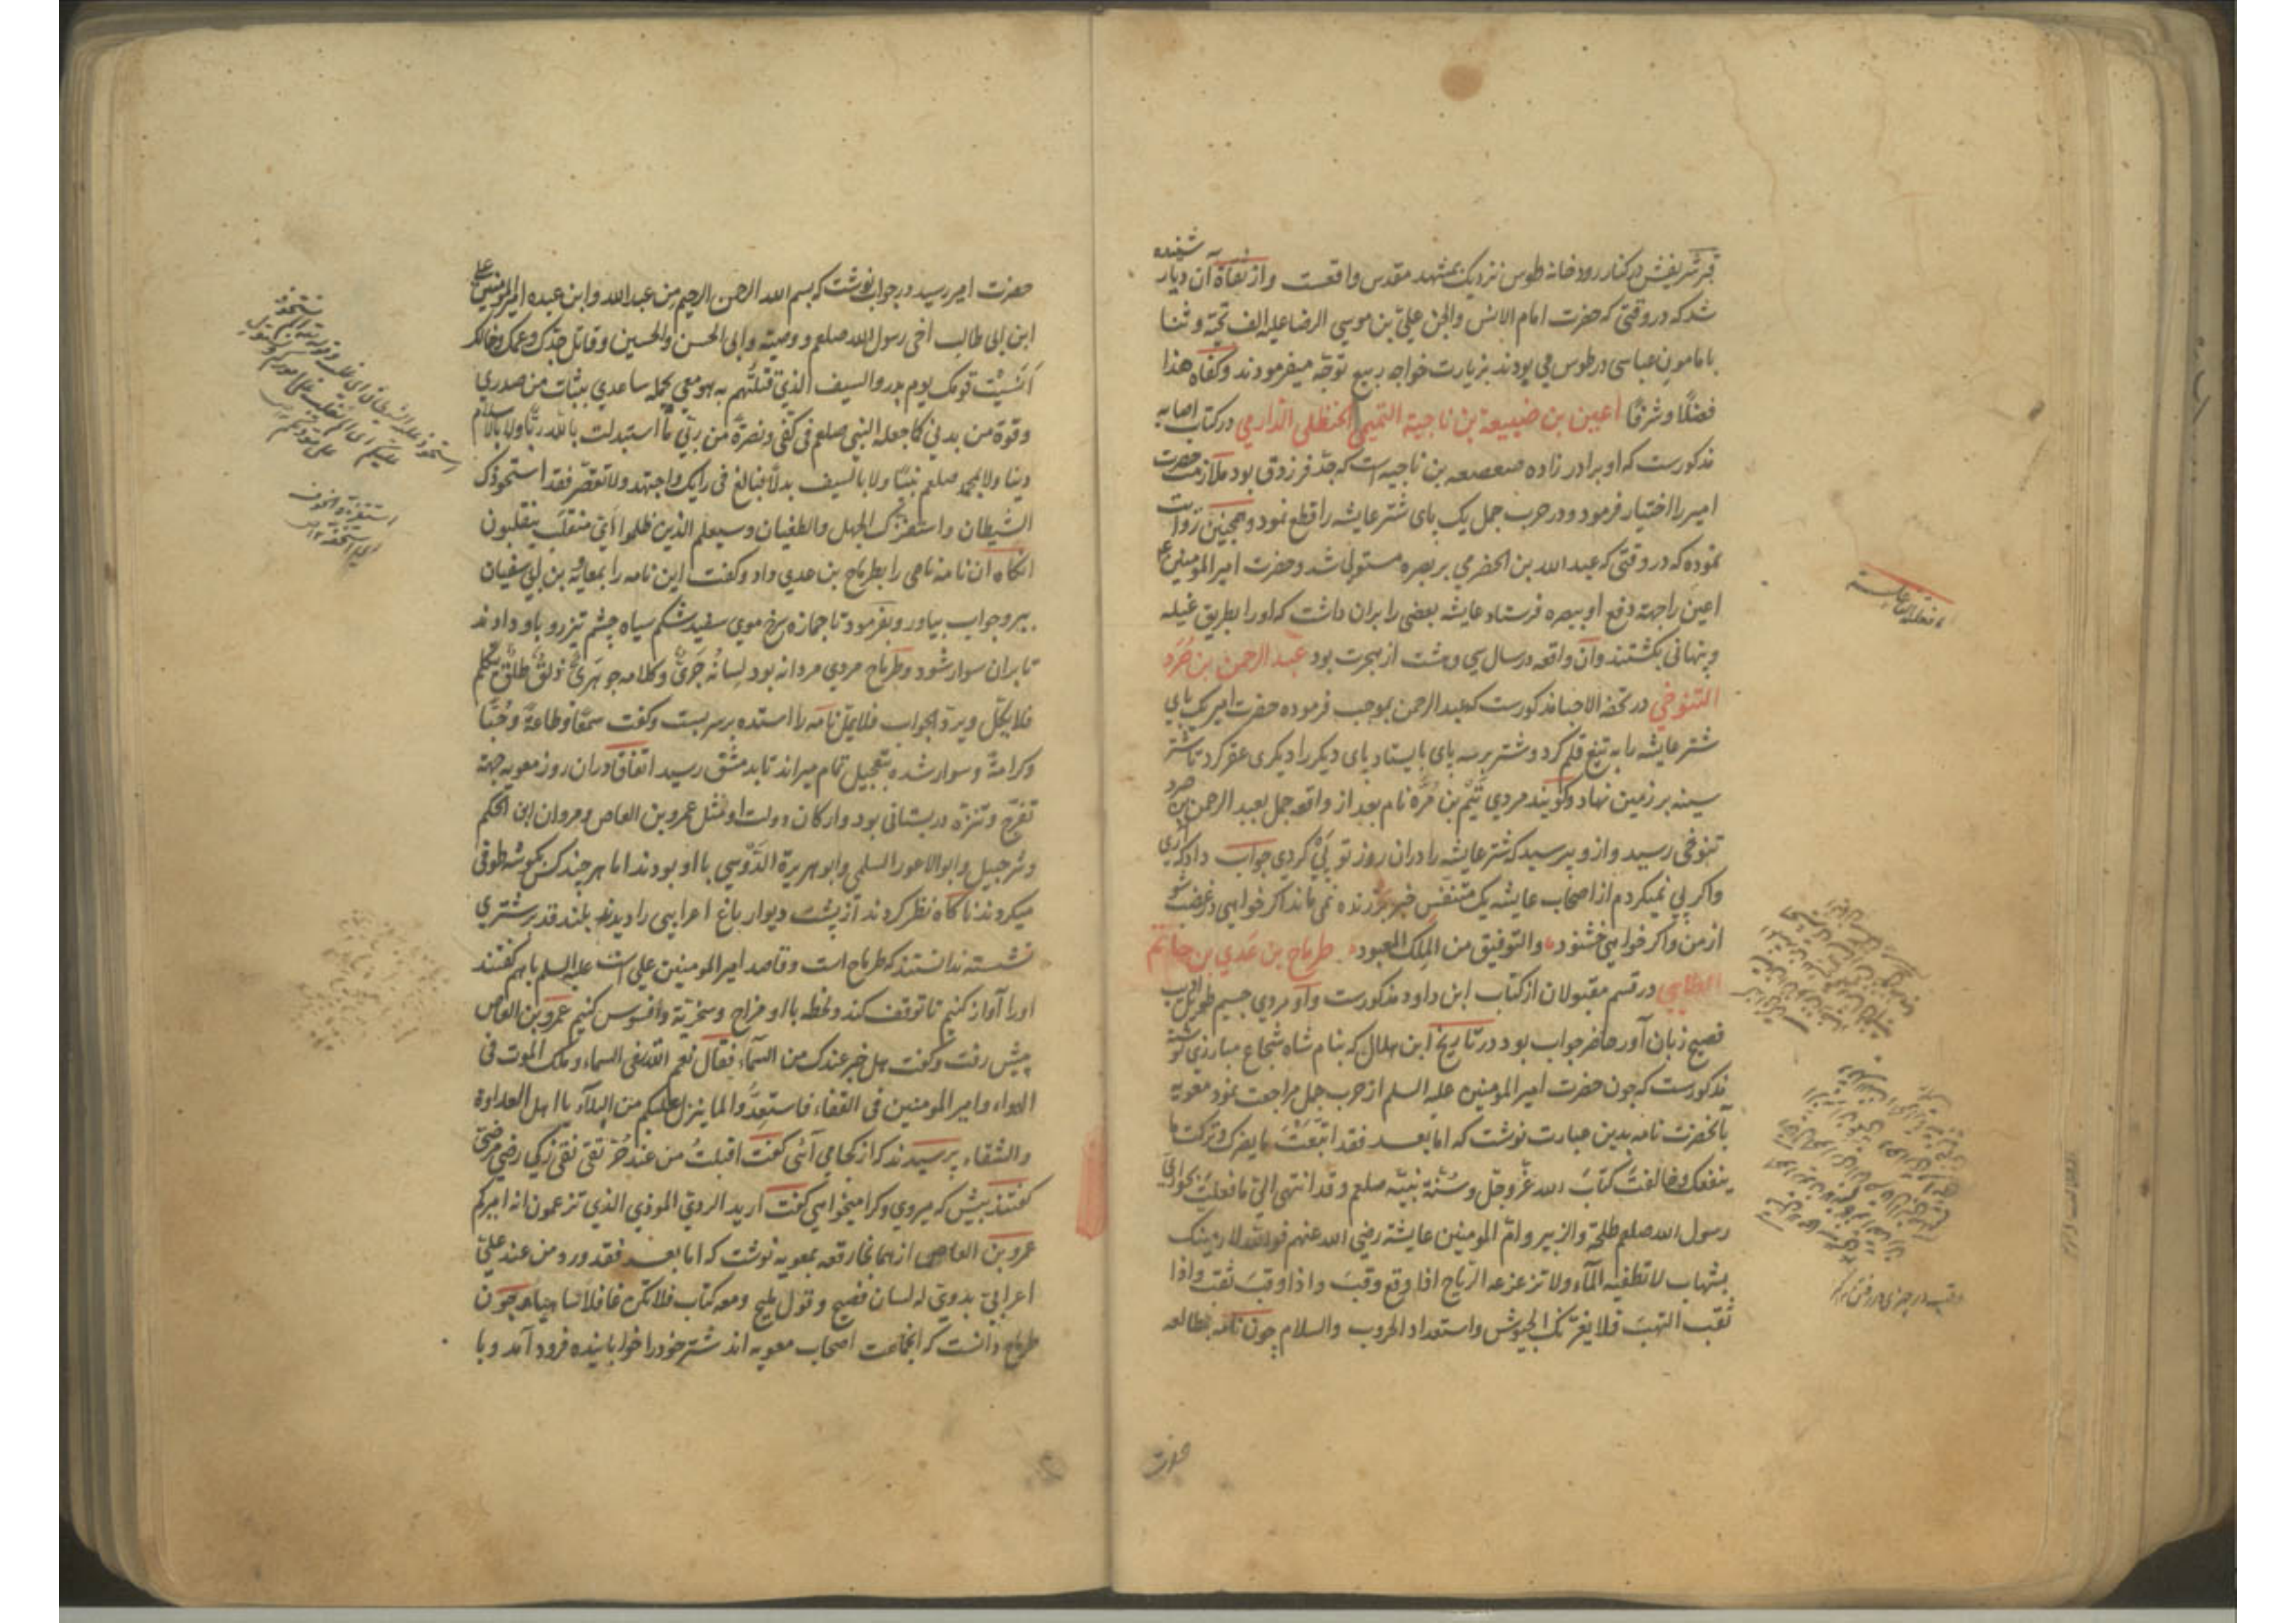 قبر شریفش در کنار رودخانه طوس نزدیک بمشهد مقدس واقعست و از ثقاة آن دیار شنیده
شد که در وقتی که حضرت امام الانس والجن علی بن موسی الرضا علیه الف تحیة و ثنا
با مامون عباسی در طوس می بودند بزیارت خواجه ربیع توجه میفرمودند و کفاه هذا
فضلًا و شرفًا اعین بن ضبیعة بن ناجیة التمیمی الحنظلی الدارمی در کتاب اصابه
مذکورست که او برادر زاده صعصعه بن ناجیه است که جد فرزدق بود ملازمت حضرت
امیر را اختیار فرمود و در حرب جمل یک پای شتر عایشه را قطع نمود و همچنین روایت
نموده که در وقتی که عبد الله بن الحضرمی بر بصره مستولی شد و حضرت امیر المومنین
اعین را جهة دفع او ببصره فرستاد عایشه بعضی را بران داشت که او را بطریق غیله
و پنهانی بکشتند و آن واقعه در سال سی و هشت از هجرت بود عبد الرحمن بن حُرَد
التنوخی در تحفه الاحبا مذکورست که عبد الرحمن بموجب فرموده حضرت امیر یک پای
شتر عایشه را به تیغ قلم کرد و شتر بر سه پای بایستاد پای دیگر را دیگری عقر کرد تا شتر
سینه بر زمین نهاد و گویند مردی تیم بن مُرّه نام بعد از واقعه جمل بعبد الرحمن بن حرد
تنوخی رسید و ازو پرسید که شتر عایشه را دران روز تو پی کردی جواب داد که آری
و اگر پی نمیکردم از اصحاب عایشه یک متنفس زنده نمی ماند اگر خواهی در غضب شو
از من و اگر خواهی خشنود والتوفیق من الملک المعبود طرماح بن عدی بن حاتم
الطایی در قسم مقبولان از کتاب ابن داود مذکورست و او مردی جسیم طویل
فصیح زبان آور حاضر جواب بود در تاریخ ابن هلال که بنام شاه شجاع مبارزی نوشته
مذکورست که چون حضرت امیر المومنین علیه السلم از حرب جمل مراجعت نمود معویه
بآنحضرت نامه بدین عبارت نوشت که اما بعد فقد اتبعت ما یضرک و ترکت ما
ینفعک و خالفت کتاب الله عز وجل و سنة نبیه صلعم و قد انتهی الی ما فعلت بحواری
رسول الله صلعم طلحة والزبیر وام المومنین عایشة رضی الله عنهم فوالله لارمینک
بشهاب لا تطفیه المآء ولا تزعزعه الریاح اذا وقع وقب و اذا وقب ثقب واذا
ثقب التهب فلا یغرنک الجیوش و استعداد الحروب والسلام چون نامه بمطالعه
حضرت
حضرت امیر رسید در جواب نوشت که بسم الله الرحمن الرحیم من عبد الله وابن عبده امیر المومنین علی
ابن ابی طالب اخی رسول الله صلعم و وصیه وابی الحسن والحسین وقاتل جدک وعمک وخالک
انسیت قومک یوم بدر والسیف الذی قتلتهم به هو معی یحمله ساعدی بثبات من صدری
وقوة من بدنی کما جعله النبی صلعم فی کفی ونصرة من ربی ما استبدلت بالله ربًا ولا بالاسلام
دینا ولا بمحمد صلعم نبیًا ولا بالسیف بدلًا فبالغ فی رایک واجتهد ولا تقصّر فقد استحوذک
الشیطان واستفزک الجهل والطغیان وسیعلم الذین ظلموا ای منقلب ینقلبون
آنگاه آن نامه نامی را بطرماح بن عدی داد و گفت این نامه را بمعاویه بن ابی سفیان
ببر و جواب بیاور و بفرمود تا جمازه سرخ موی سفید شکم سیاه چشم تیز رو باو دادند
تا بران سوار شود و طرماح مردی مردانه بود لسانه جری وکلامه جوهری ذلق طلق یتکلم
فلا یکل ویرد الجواب فلا یمل نامه را استده بر سر بست و گفت سمعًا وطاعةً وحُبًا
وکرامةً و سوار شده بتعجیل تمام میراند تا بدمشق رسید اتفاقا دران روز معویه جهة
تفرج و تنزه در بستانی بود و ارکان دولت او مثل عمرو بن العاص و مروان ابن الحکم
و شرحبیل و ابو الاعور السلمی و ابو هریرة الدّوسی با او بودند اما هر چند کس بگوشه طوفی
میکردند ناگاه نظر کردند از پشت دیوار باغ اعرابیی را دیدند بلند قد بر شتری
نشسته ندانستند که طرماح است و قاصد امیر المومنین علی است علیه السلم باهم گفتند
او را آواز کنیم تا توقف کند و لحظه با او مزاح و سخریة و افسوس کنیم عمرو بن العاص
پیش رفت و گفت هل خبر عندک من السمآء فقال نعم الله فی السماء وملک الموت فی
الهواء وامیر المومنین فی القفاء فاستعدّوا لما ینزل علیکم من البلآء یا اهل العداوة
والشقاء پرسیدند که از کجا می آئی گفت اقبلتُ من عند حُرّ تقی نقی زکی رضی مرضی
گفتند پیش که میروی و کرا میخواهی گفت ارید الردی الموذی الذی تزعمون انه امیرکم
عمرو بن العاص از همانجا رقعه بمعویه نوشت که اما بعد فقد ورد من عند علیّ
اعرابی بدویّ له لسان فصیح و قول ملیح ومعه کتاب فلا تکن غافلا ساهیا چون
طرماح دانست که انجماعت اصحاب معویه اند شتر خود را خوابانیده فرود آمد و با